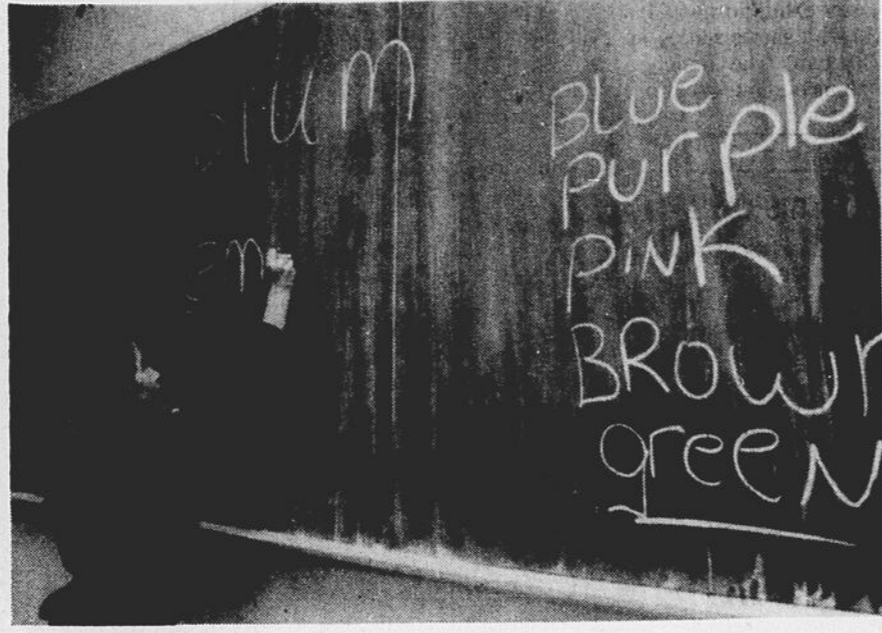 plum
BLue
purple
piNK
BROwn
greeN